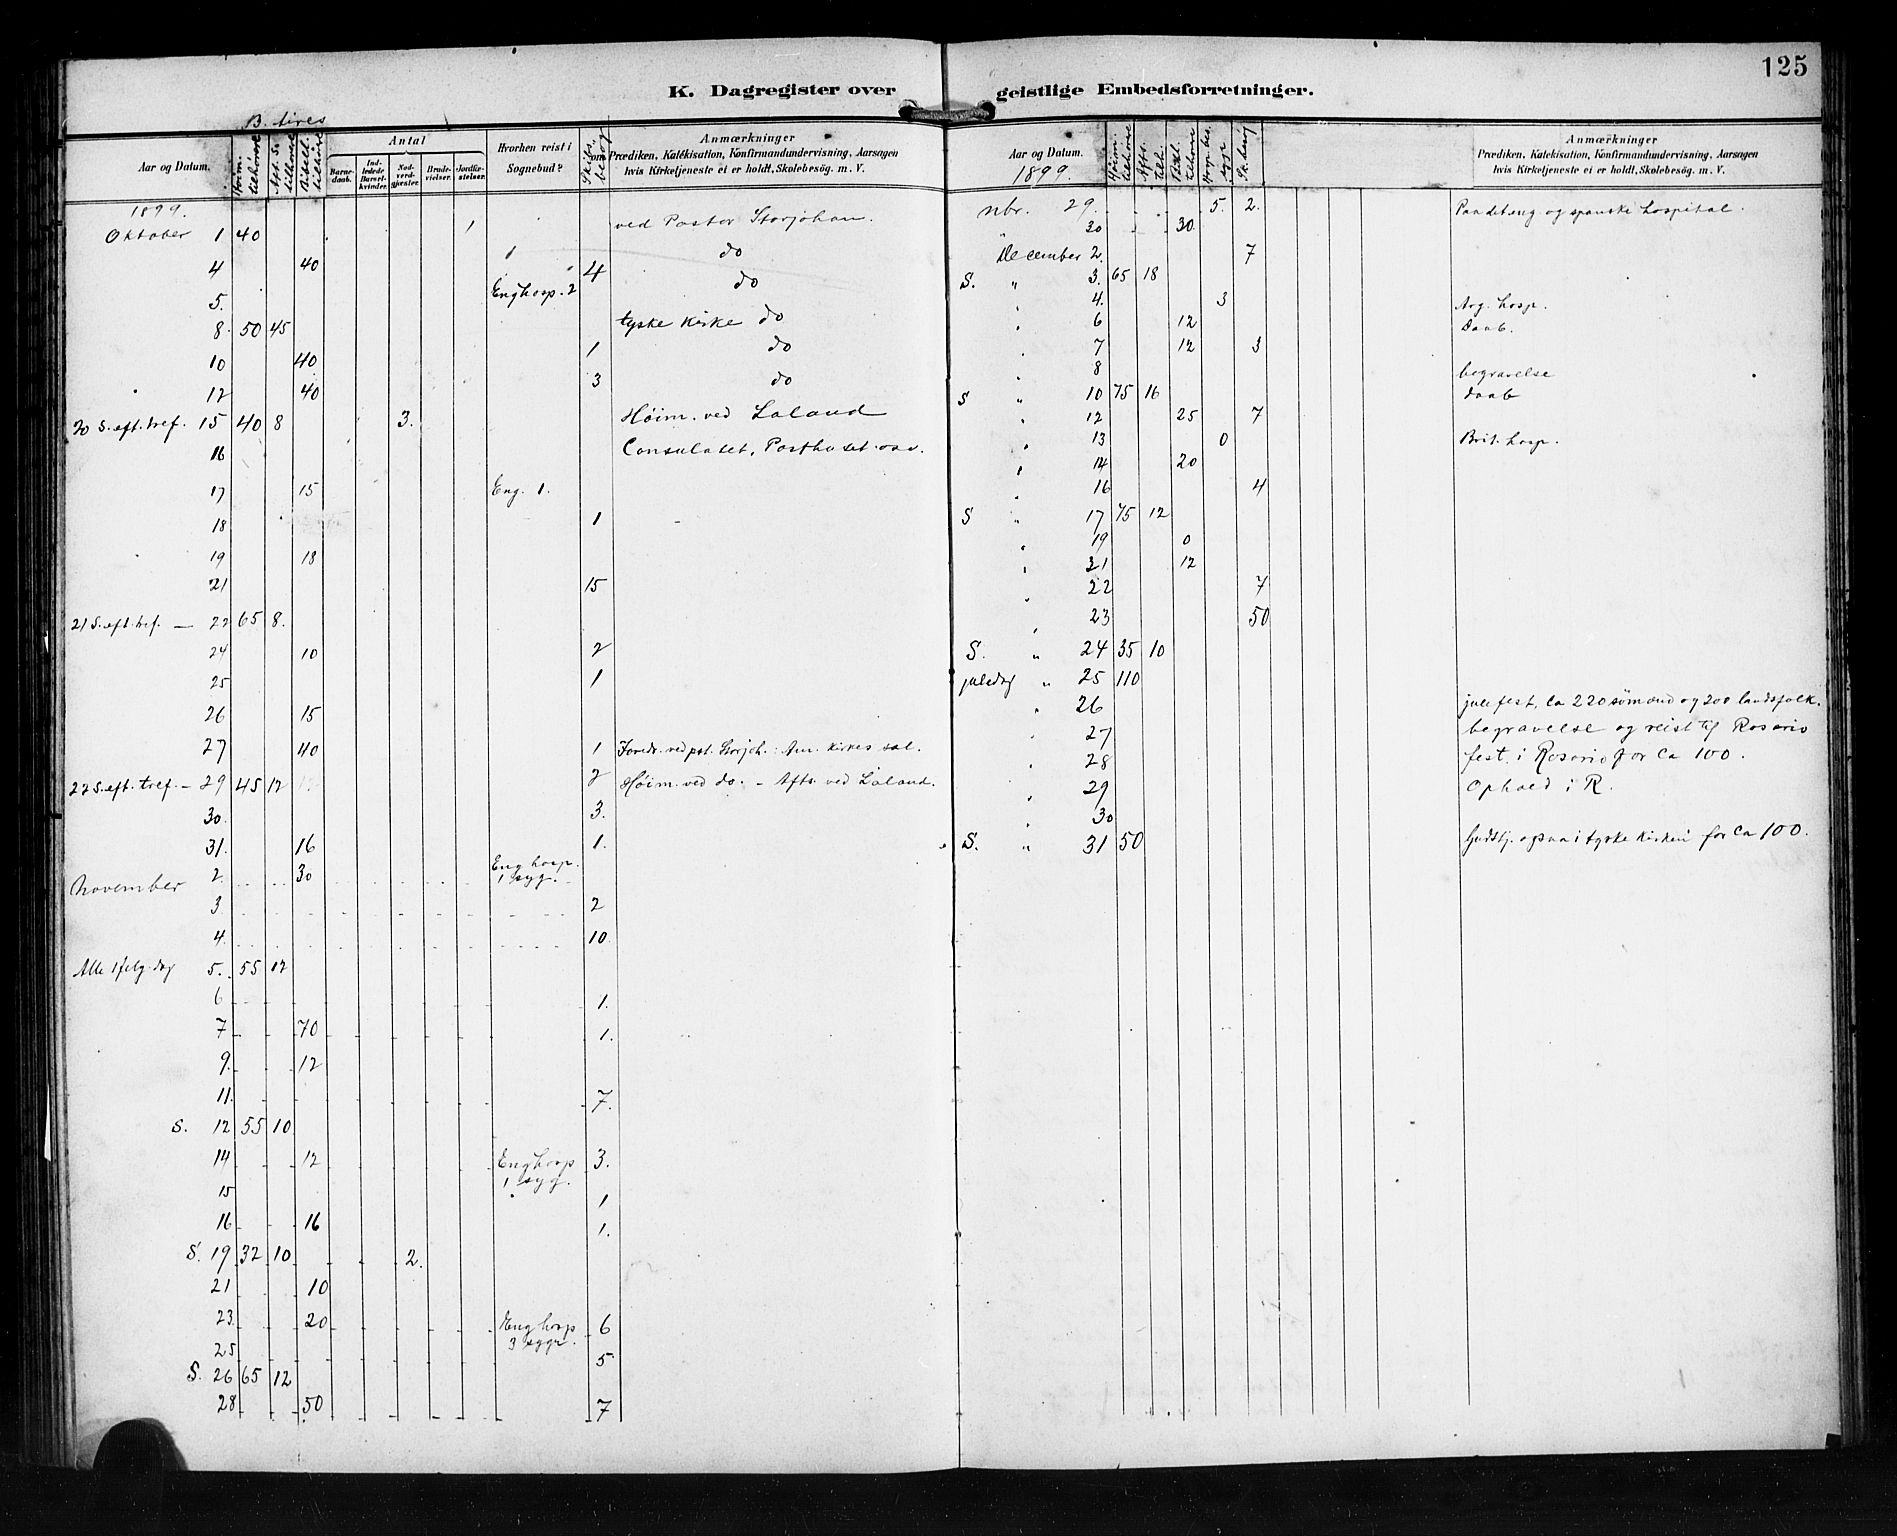 125
K. Dagregister over geistlige Embedsforretninger.
B. Aires
Aar og Datum.
Høim. tilhørere
Aft. S. tilhørere
Bibelt. tilhørere
Antal
Barne-daab.
Ind-ledede Barsel-kvinder.
Nad-verd-gjester.
Brude-vielser.
Jordfæ-stelser.
Hvorhen reist i Sognebud?
Skibs-besøg
Anmærkninger
Prædiken, Katekisation, Konfirmandundervisning, Aarsagen
hvis Kirketjeneste ei er holdt, Skolebesøg. m. V.
1899.
Oktober 1 40 1 ved Pastor Storjohan.
4 40 1 4 do
5. Eng hosp. 2 do
8. 50 45 tyske Kirke do
10 40 1 do
12 40 3 do
20 S. eft. tref. 15 40 8 3. Høim. ved Laland
16 Consulatet, Posthuset osv.
17 15 Eng. 1.
18 1
19 18
21 15
21 S. eft. tref. — 22 65 8.
24 10 2
25 1
26 15
27 40 1 Foredr. ved pst. Storjoh.: Am. Kirkes sal.
22 S. eft. tref. — 29 45 12 2 Høim. ved do. – Afts. ved Laland.
30. 3.
31. 16 1.
November 2. 30 Eng hosp. 1 syg.
3. 2
4. 10.
Alle helg. dag 5. 55 12
6 1.
7 70 1.
9. 12
11. 7.
S. 12 55 10
14 12 Eng hosp 1 syg. 3.
15 1
16 16 1.
S. 19 32 10 2.
21 10
23. 20 Eng hosp 3 syge. 6
25 5
S. 26 65 12
28 50 7
Aar og Datum.
1899.
Høim. tilhørere
Afts. tilh.
Bibl. tilhøre
Hosp. bes. syge
Sk. besøg
Anmærkninger
Prædiken, Katekisation, Konfirmandundervisning, Aarsagen
hvis Kirketjeneste ei er holdt, Skolebesøg. m. V.
Nbr. 29. 5. 2. Paa det eng. og spanske hospital.
" 30 30.
December 2. 7
S. " 3. 65 18
" 4. 3 Arg. hosp.
" 6 12 Daab.
" 7 12 3
" 8 begravelse
S " 10 75 16 daab
" 12 25 7
" 13 0 Brit. hosp.
" 14 20
" 16 4
S " 17 75 12
" 19 0
" 21 12
" 22 7
" 23 50
S. " 24 35 10
juledag " 25 110
" 26 julefest, ca 220 sømænd og 200 landsfolk.
" 27 begravelse og reist til Rosario
" 28 fest i Rosario for ca 100.
" 29 Ophold i R.
" 30
S. " 31 50 Gudstj. ogsaa i tyske Kirken for ca 100.